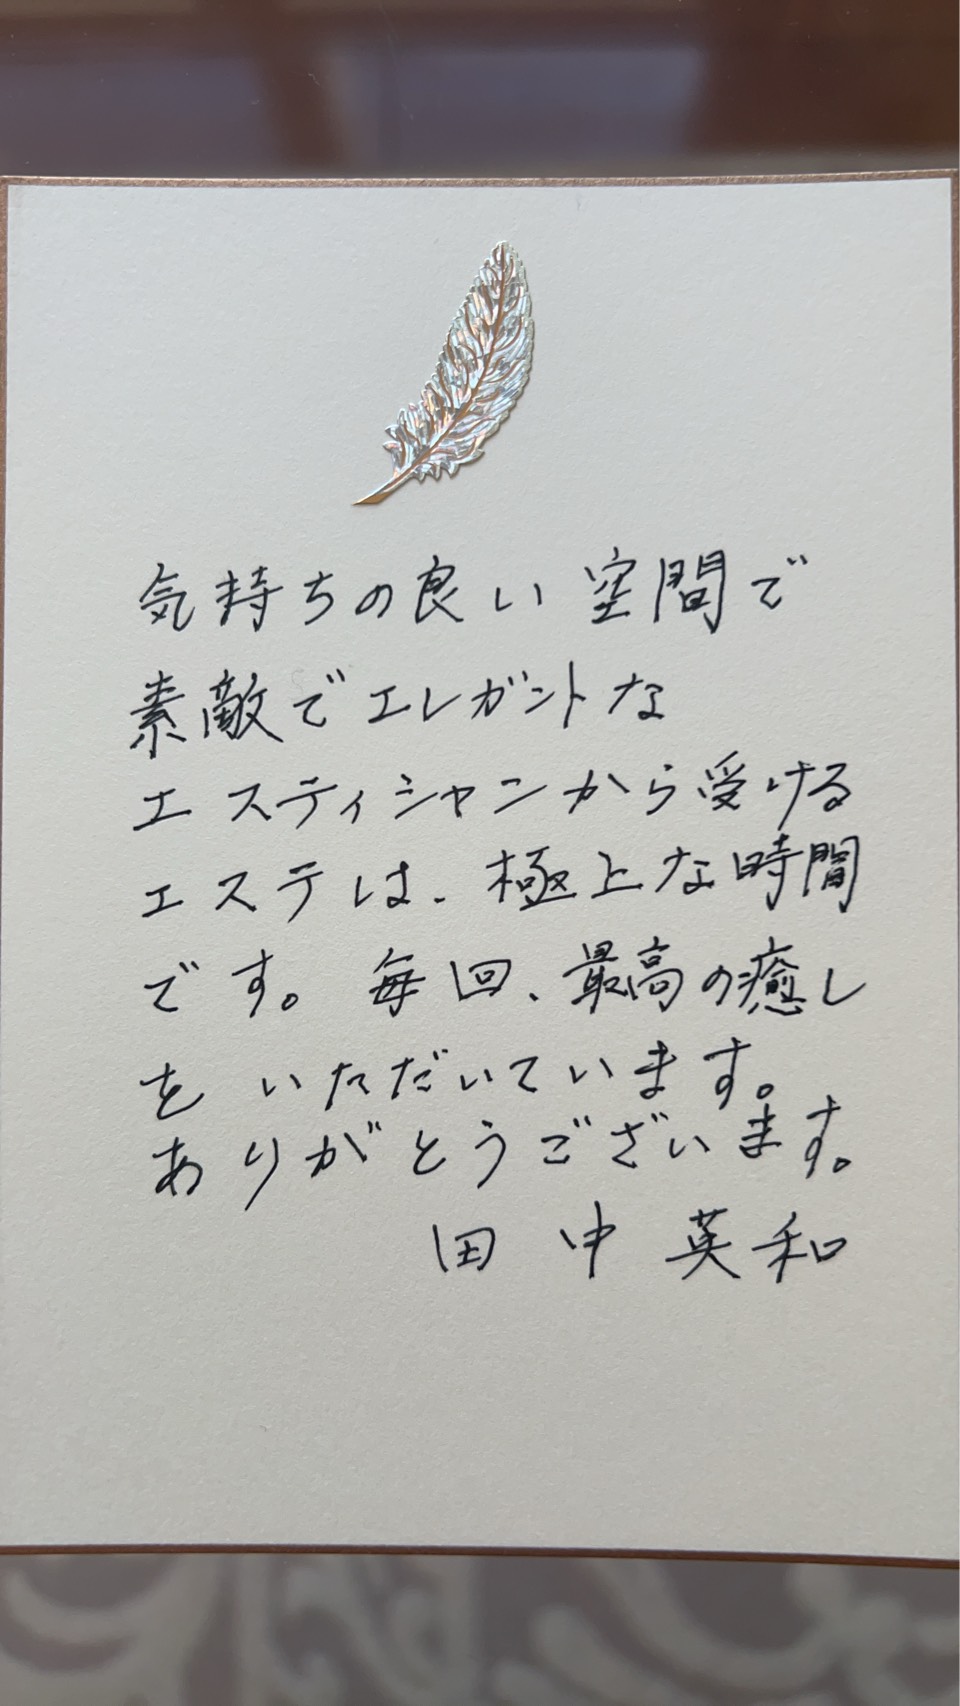 気持ちの良い空間で
素敵でエレガントな
エスティシャンから受ける
エステは、極上な時間
です。毎回、最高の癒し
をいただいています。
ありがとうございます。
田中英和